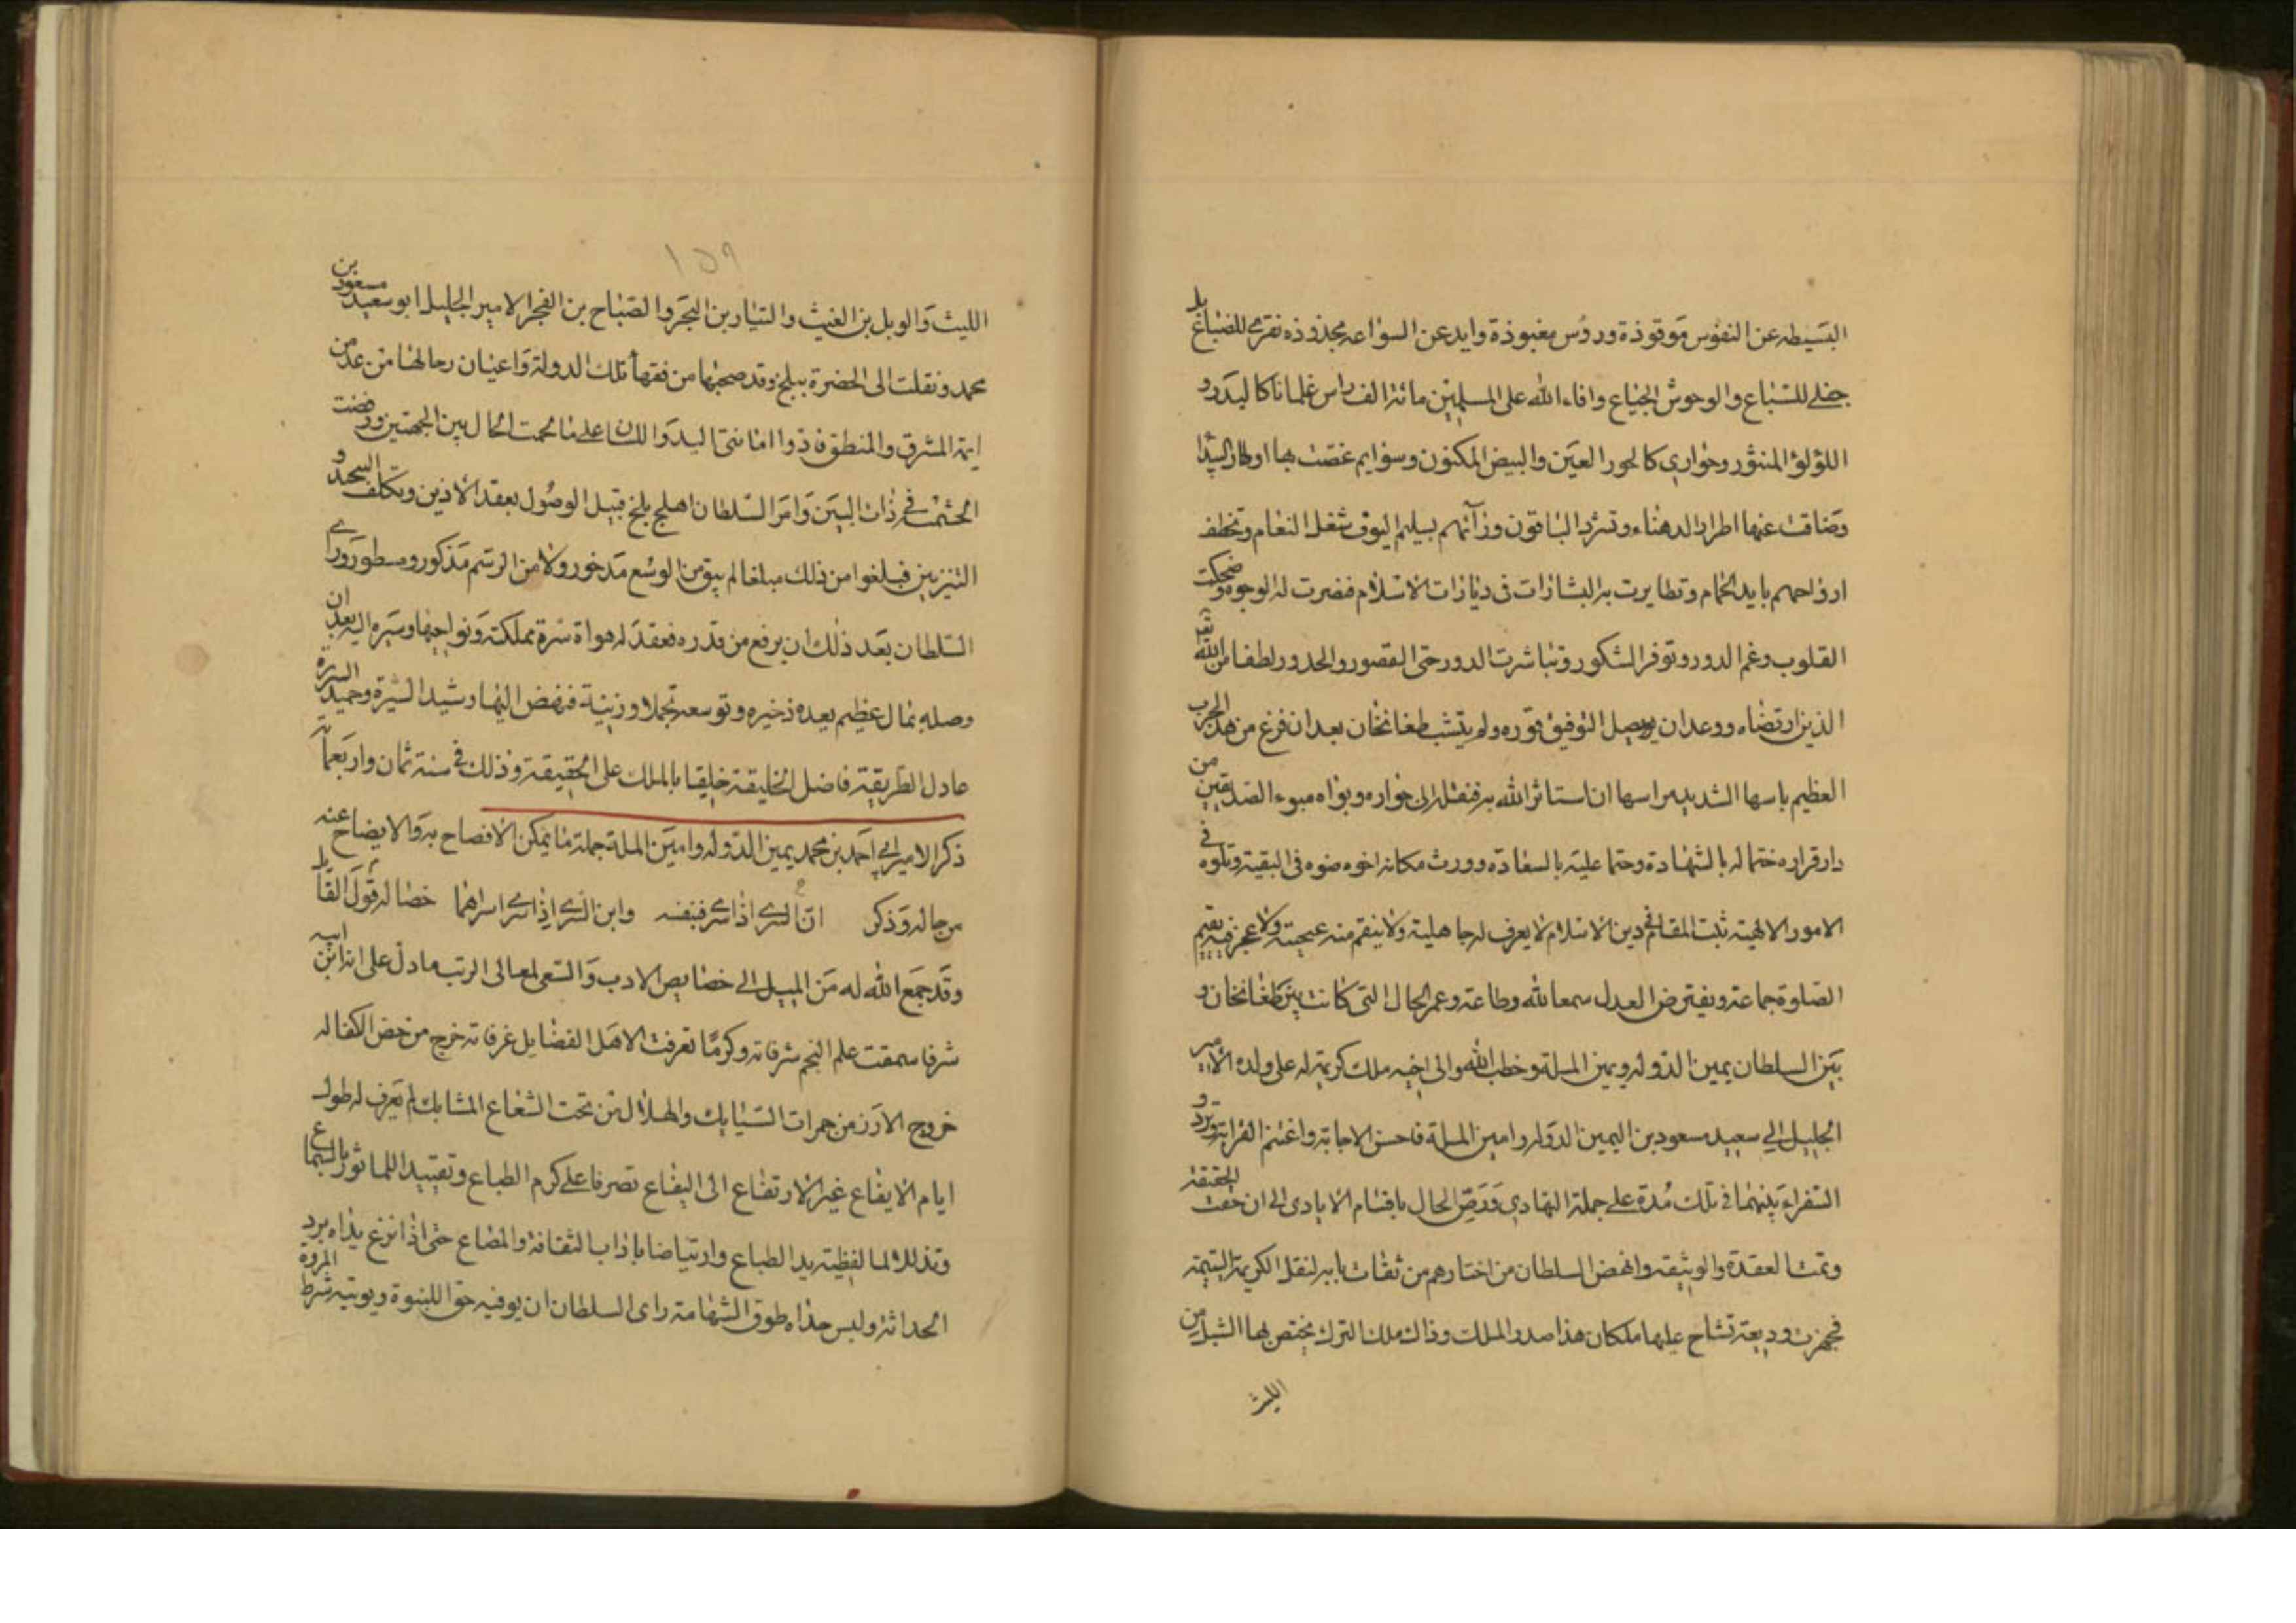 البسيطه عن النفوس موقوذة ورؤس مغبوذة وايد عن السواعد مجذوذه نقرى للضباع بل
جفلى للسباع والوحوش الجياع وافاء الله على المسلمين مائة الف راس غلمانا كالبدر و
اللؤلؤ المنثور وجواري كالحور العين والبيض المكنون وسوايم غصت بها
وضاقت عنها اطرار الدهناء وشرد الباقون وزآئهم شغل النعام وتخطف
ارواحهم بايد الحمام وتطايرت به البشارات في ديارات الاسلام فنضرت له الوجوه وضحكت
القلوب وعم الدور وتوفر الشكور وتباشرت الدور حتى القصور والخدور لطفا من الله
الذي ارتضاه ووعد ان يوصل التوفيق ولم يتشب طغانخان بعد ان فرغ من هذه الحرب
العظيم باسها الشديد مراسها ان استاثر الله به فنقله الى جواره وبواه مبوء الصديقين من
دار قراره ختما له بالشهادة وحتما عليه بالسعادة وورث مكانه اخوه صنوه في البقية وتلوه في
الامور الالهية ثبت المقام في دين الاسلام لا يعرف له جاهلية ولا ينقم منه عيجيته ولا عجرفيه يقيم
الصلوة جماعة ويفترض العدل سمعا لله وطاعة وعمر الحال التي كانت بين طغانخان و
بين السلطان يمين الدولة ويمين الملة وخطب الله والى اخيه ملك كريمة له على ولده الامير
الجليل ابي سعيد مسعود بن اليمين الدوله وامين الملة فاحسن الاجابة واغتنم القرابة وتردد و
السفراء بينهما في تلك مدة على جملة التهادي ورص الحال باقتسام الايادى الى ان حقت الحقيقة
وتمت العقدة والوثيقة وانهض السلطان من اختارهم من ثقات بابه لنقل الكريمة اليتيمة
فجهزت وديعة تشاح عليها ملكان هذا صدر الملك وذاك ملك الترك يختص بها الشبل من
الليث
١٥٩
الليث والوبل بن الغيث والتيار بن البحر والصباح بن الفجر الامير الجليل ابو سعيد مسعود بن
محمد ونقلت الى الحضرة ببلخ وقد صحبها من فقهاء تلك الدولة واعيان رجالها من عد من
ايمة المشرق والمنطق فادوا امانتي اليد واللسان على ما لحمت الحال بين الجهتين ورفضت
الحشمة في ذات البين وامر السلطان اهل بلخ قبيل الوصول بعقد الاذين وتكلف السجد و
التزيين فبلغوا من ذلك مبلغا لم يبق من الوسع مذخور ولا من الرسم مذكور ومسطور وراى
السلطان بعد ذلك ان يرفع من قدره فعقد له هراة سرة مملكته ونواحيها وسيره اليه بعد ان
وصله بمال عظيم يعده ذخيره وتوسعه تجملا وزينة فنهض اليها رشيد السيرة وحميد السريرة
عادل الطريقة فاضل الخليقة خليقا بالملك على الحقيقة وذلك في سنة ثمان واربعمائة
ذكر الامير ابي احمد بن محمد يمين الدوله وامين الملة جملة ما يمكن الافصاح به والايضاح عنه
من حاله وذكر خصاله قول القايل ان السرى اذا سرى فبنفسه وابن السرى اذا سرى اسراهما
وقد جمع الله له من الميل الى خصايص الادب والسعى لمعالى الرتب ما دل على انه ابن ابيه
شرفا سمقت على النجم شرفاته وكرما تعرفت لاهل الفضايل غرفاته خرج من خض الكفاله
خروج الابرز من جمرات السبايك والهلال من تحت الشعاع المشابك لم يعرف له طول
ايام الايفاع غير الارتفاع الى اليفاع تصرفا على كرم الطباع وتقييدا للماثور بالسماع
وتذللا لما لفظته يد الطباع وارتياضا باداب الثقافة والمصاع حتى اذا نزع يداه برد
الحداثة ولبس طوق الشهامة راى السلطان ان يوفيه حق البنوة ويوتيه شرط المروة